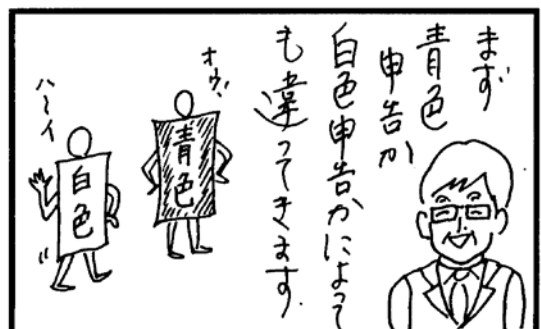 まず
青色
申告か
白色申告かによって
も違ってきます.
オウ!
青色
ハーイ
白色